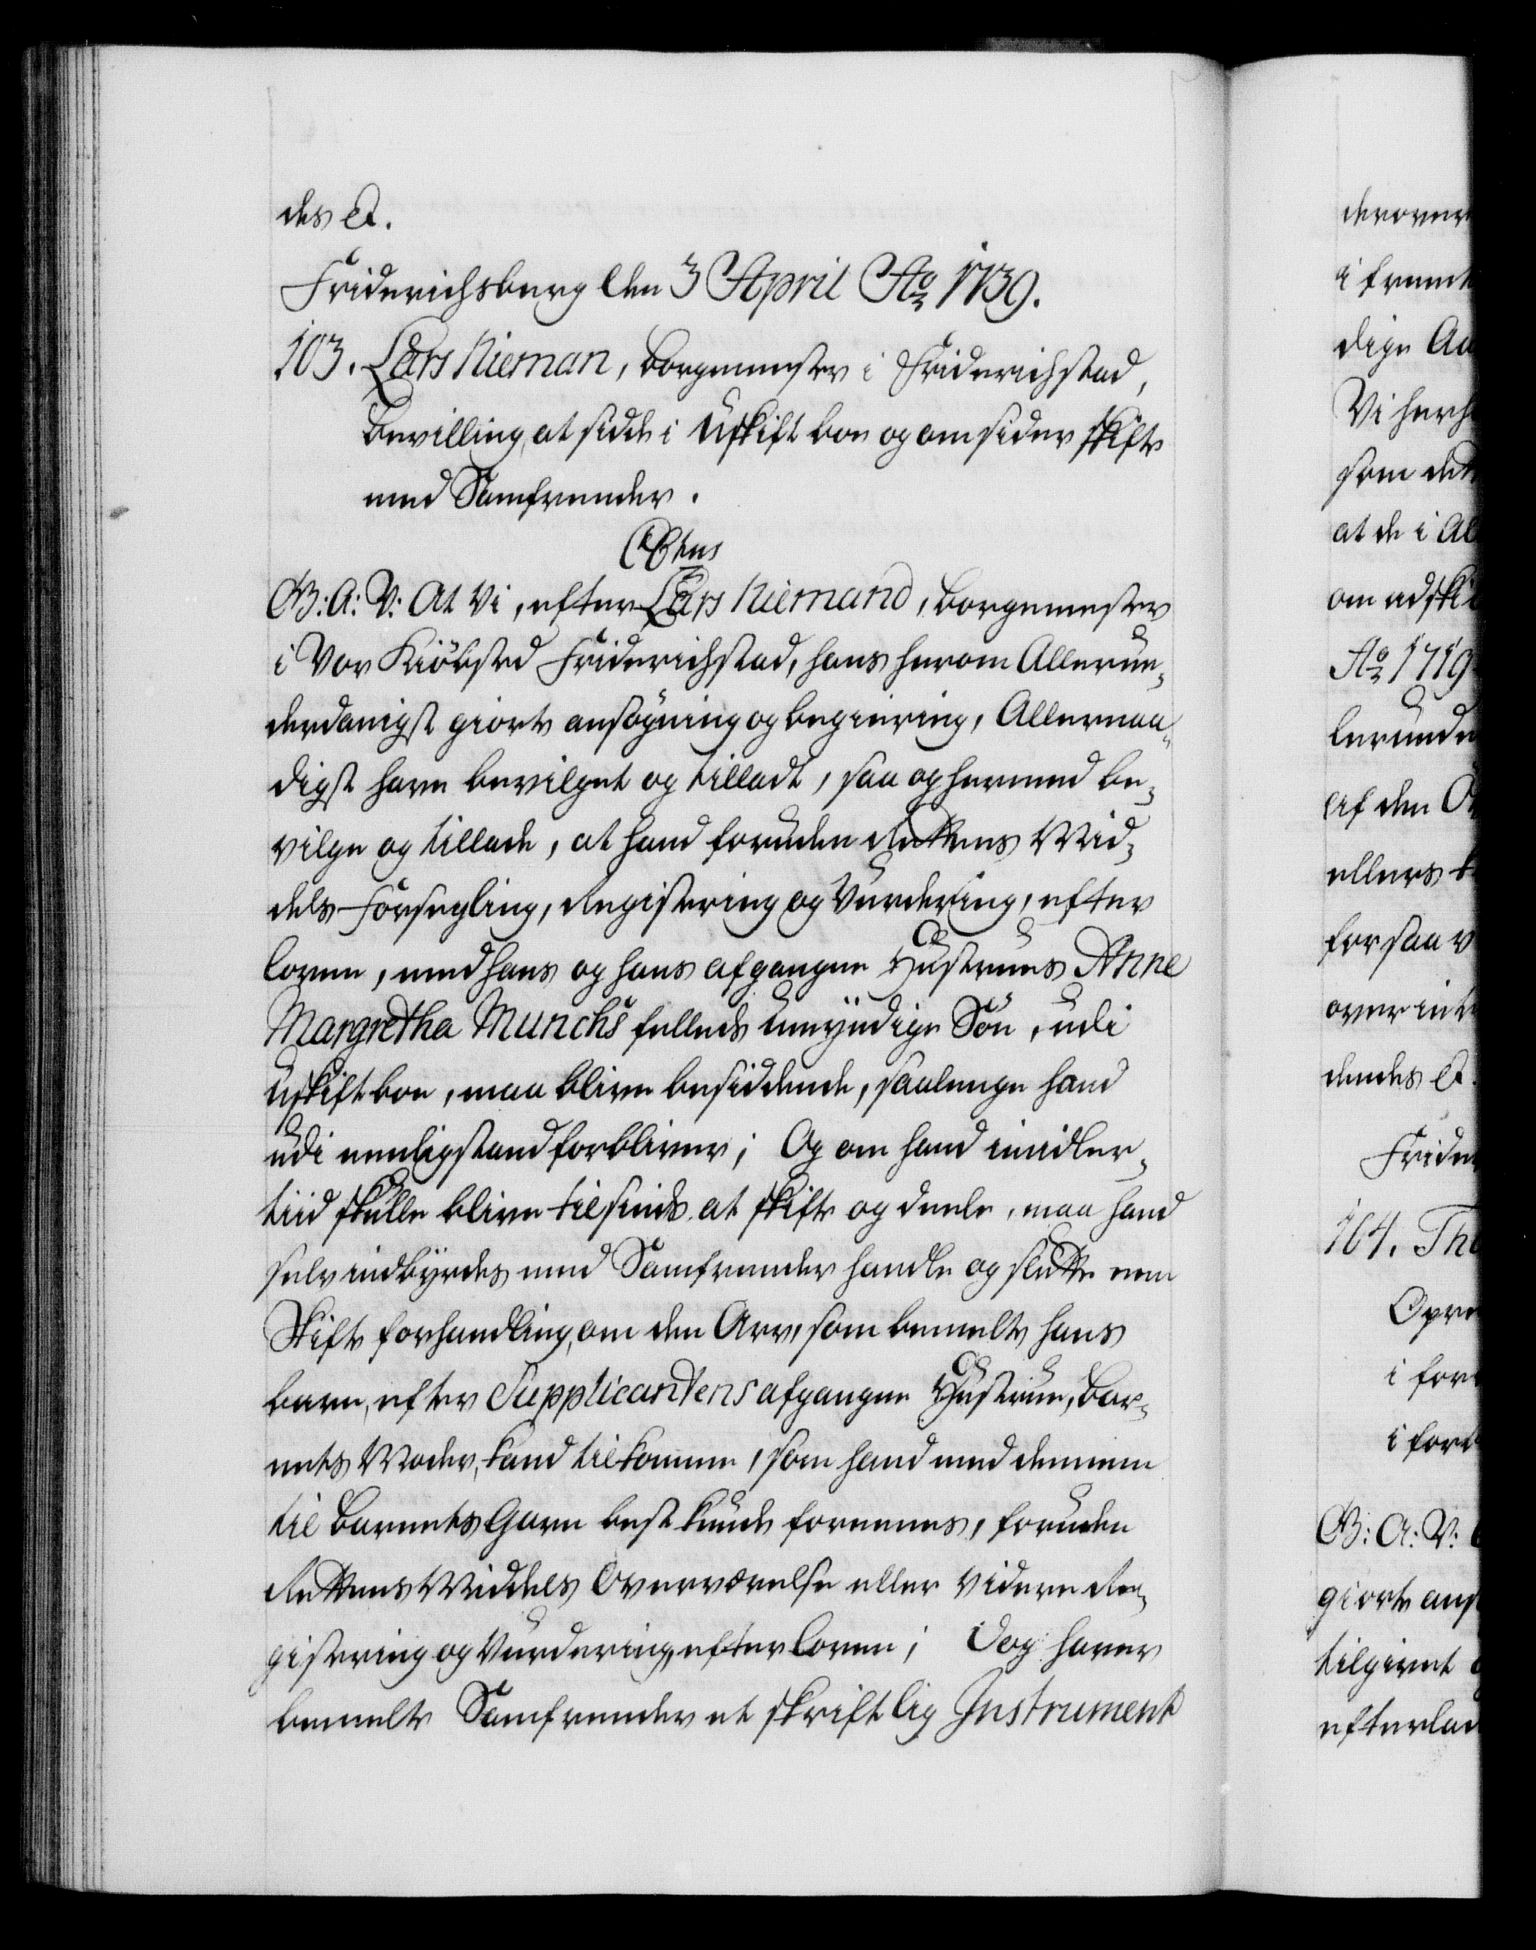 des etc.
Friderichsberg den 3 April Ao 1739.
103. Lars Nieman, borgemester i Friderichstad,
Bevilling, at sidde i uskift boe og omsider skifte
med Samfrender.
G: A: V: At Vi, efter Lars Niemand, borgemester
i Vor Kiøbsted Friderichstad, hans herom Allerun-
derdanigst giorte ansøgning og begiering, Allernaa-
digst have bevilget og tilladt, saa og hermed be-
vilge og tillade, at hand foruden Rettens Mid-
dels Forsegling, Registering og Vurdering, efter
loven, med hans og hans afgangne Hustrues Anne
Margretha Munchs felleds umyndige Søn, udi
uskift boe, maa blive besiddende, saalenge hand
udi eenligstand forbliver; Og om hand imidler-
tiid skulle blive tilsinds at skifte og deele, maa hand
selv indbyrdes med Samfrender handle og slutte een
Skifte forhandling, om den Arv, som bemelte hans
barn, efter Supplicantens afgangne Hustrue, Bar-
nets Moder, kand tilkomme, som hand med dennem
til Barnets Gavn best kunde foreenes, foruden
Rettens Middels Overværelse eller videre Re-
gistering og Vurdering, efter loven; Dog haver
bemelte Samfrender et skriftlig Instrument
derover
i fremt
dige Aa
Vi her
som det
at de i Al
om adski
Ao 1719
berunde
af den O
ellers
for saa v
over int
dendes etc.
Frider
104. Tho
Opre
i for
i for
G: A: V:
giorte ans
tilgivet
efterlad